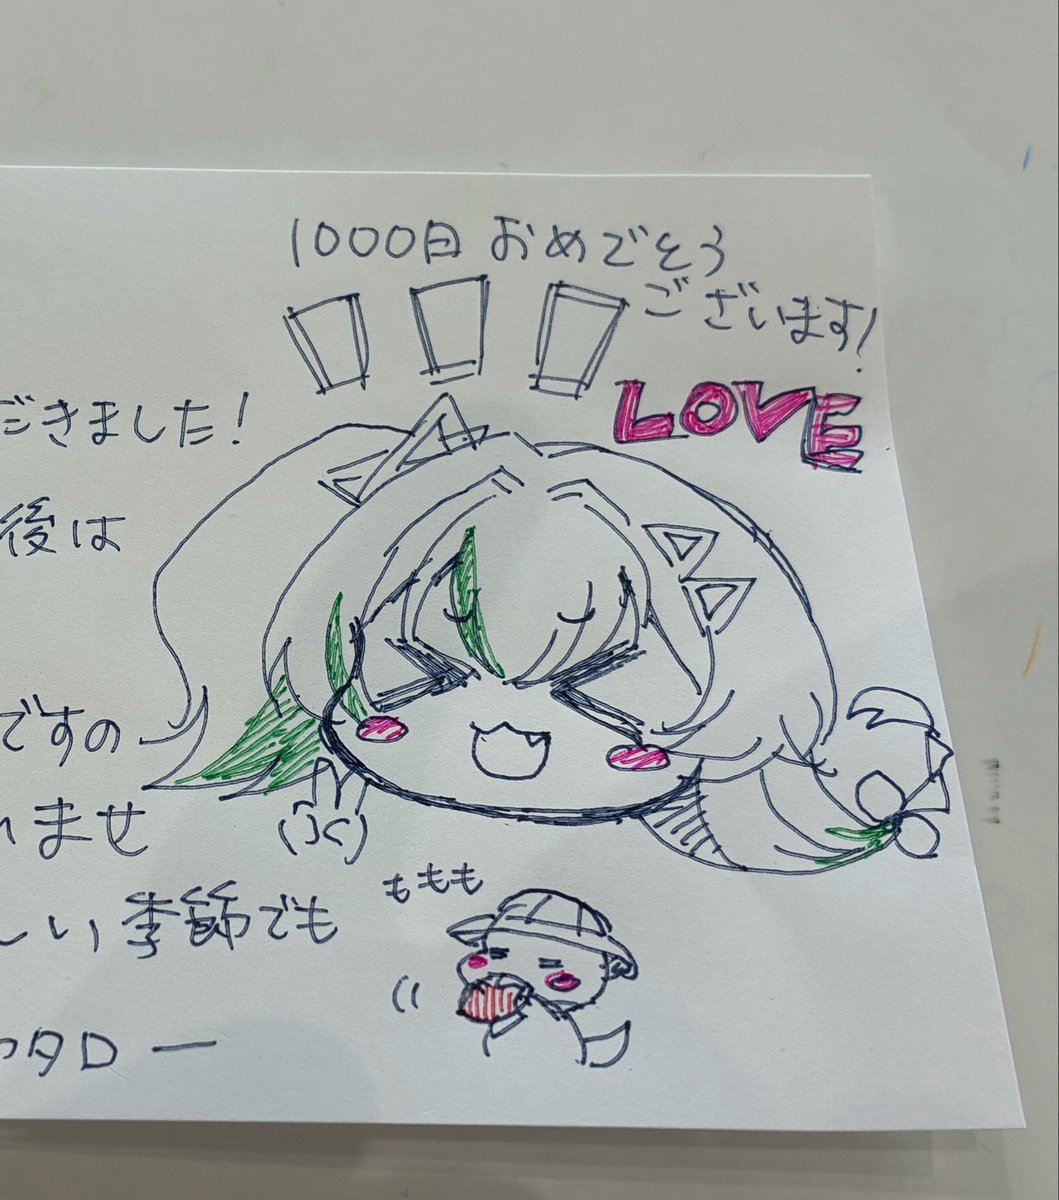 1000日 おめでとう
ございます!
LOVE
だきました!
後は
ですの
ませ
しい季節でも
タロー
ももも